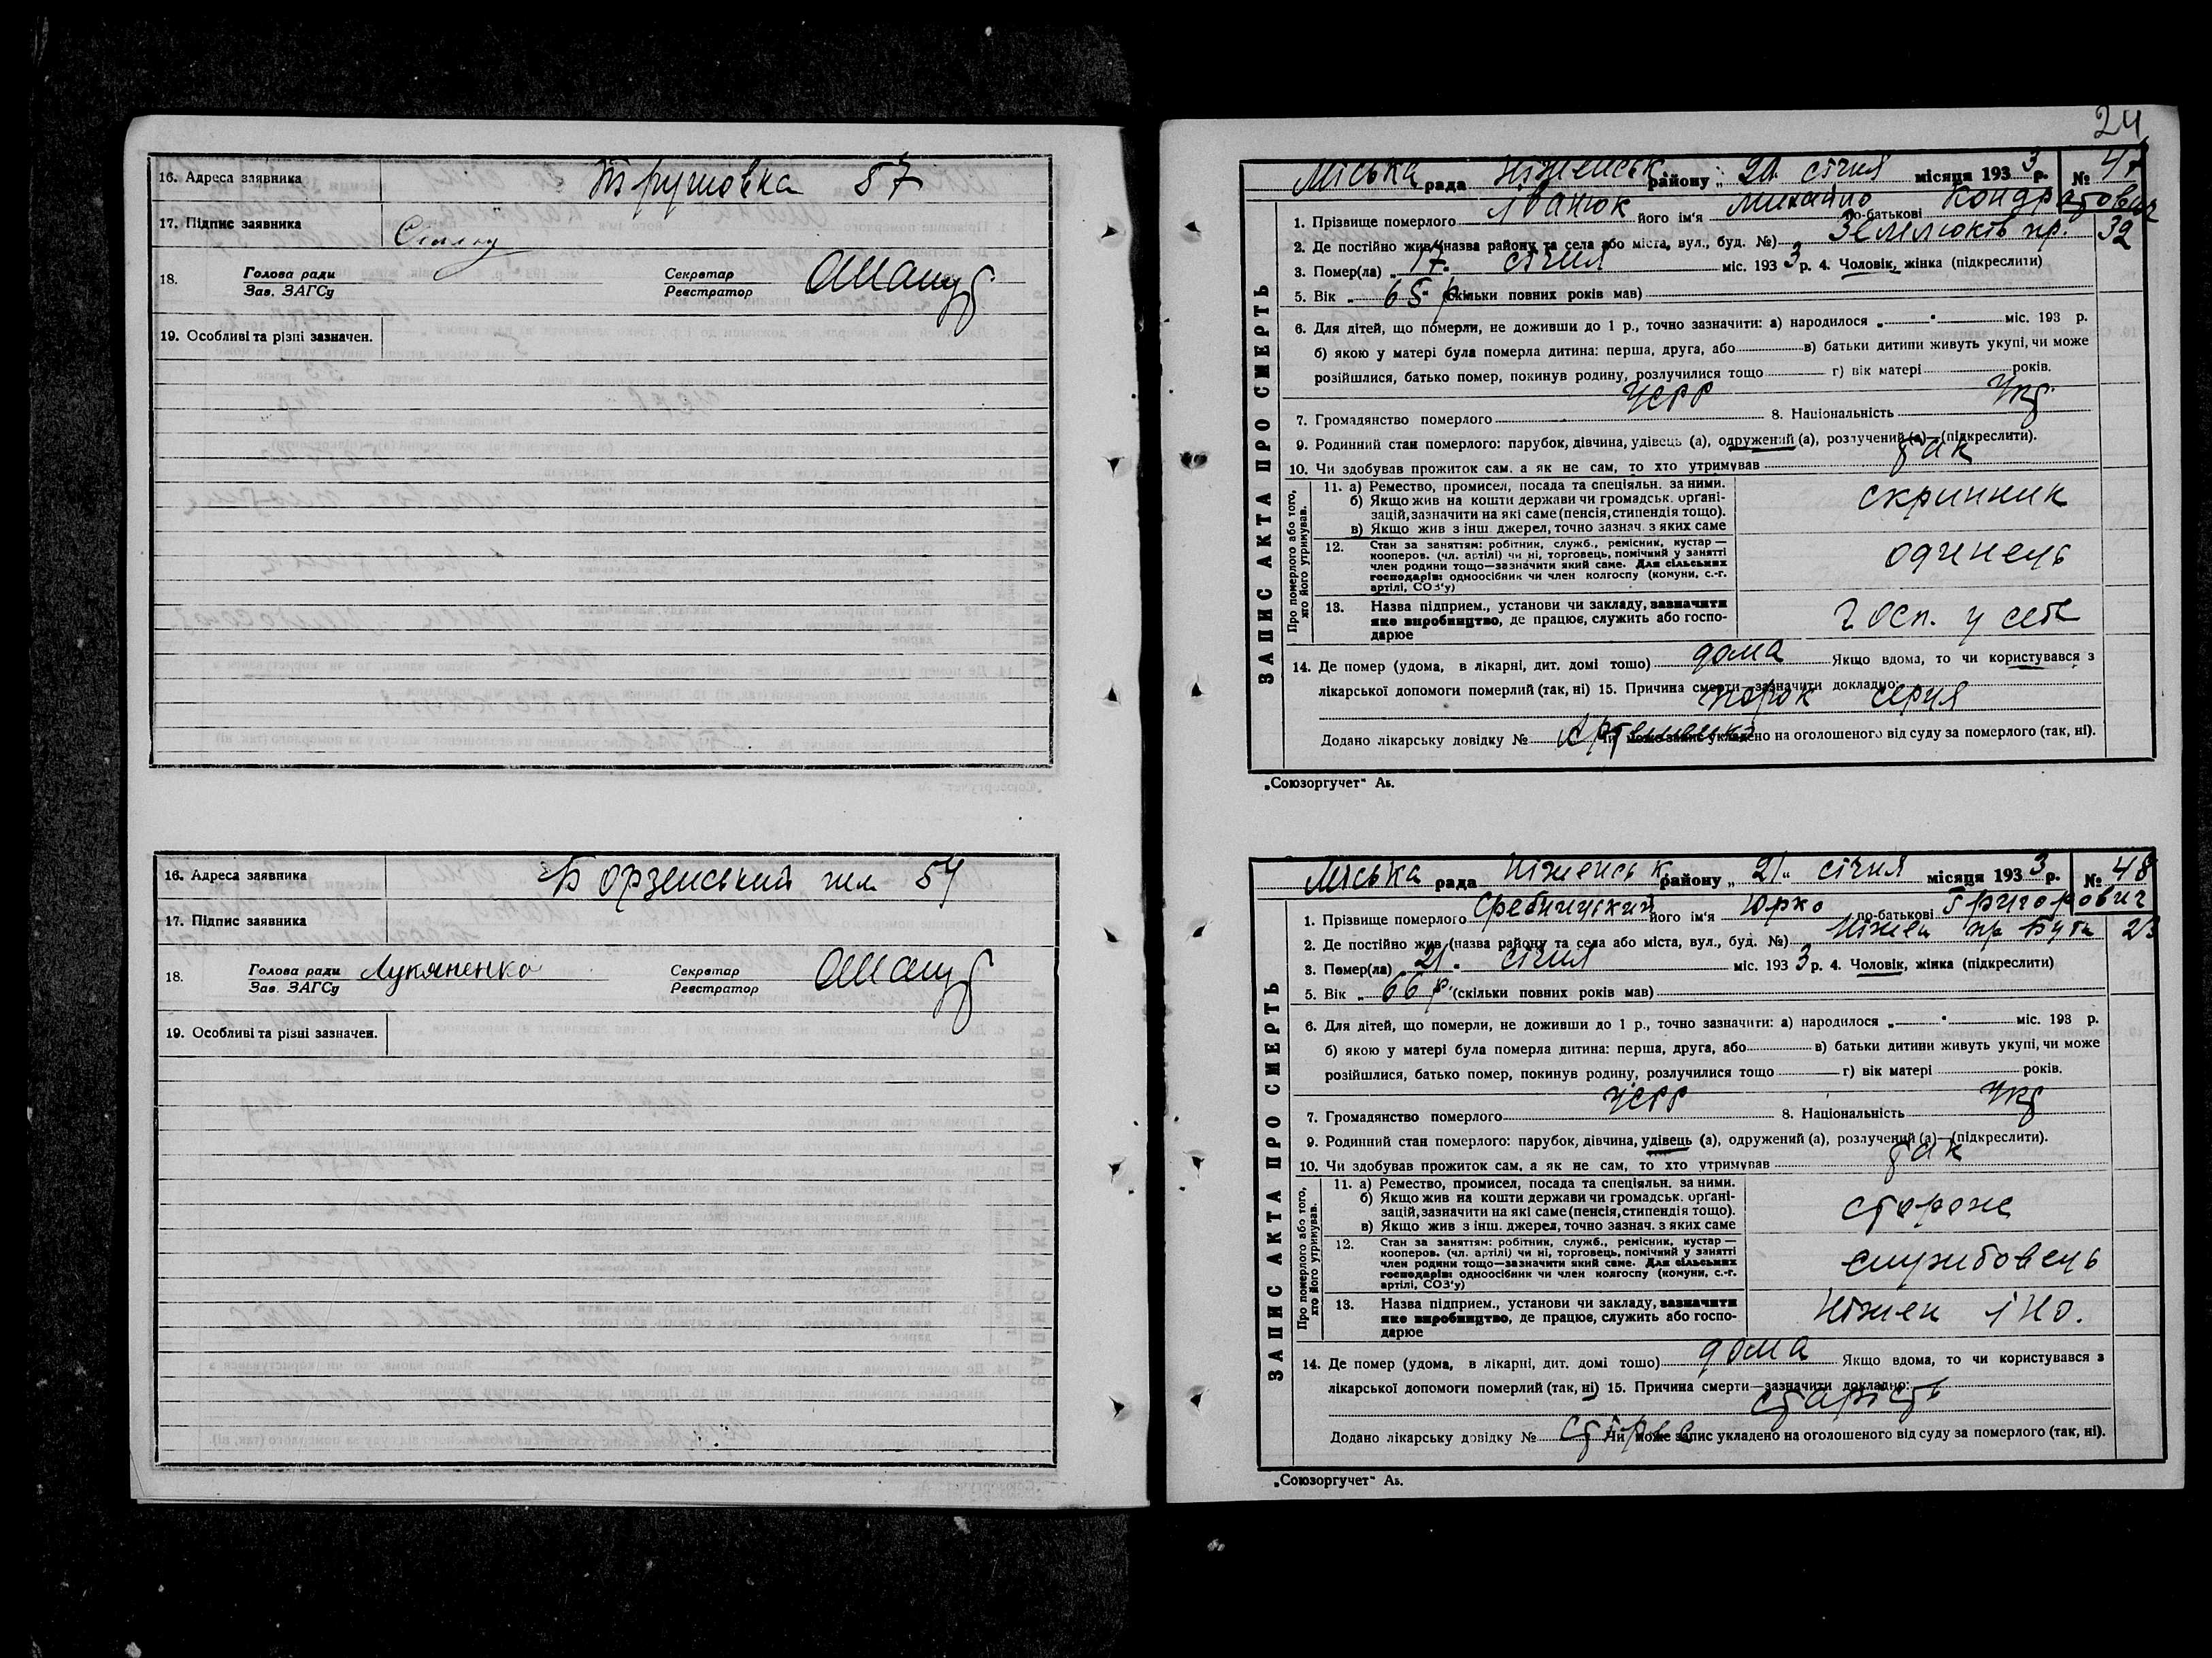 16. Адреса заявника Трушовка 57
17. Підпис заявника
18. Голова ради
Зав. ЗАГСу
Секретар
Реєстратор
19. Особливі та різні зазначен.
16. Адреса заявника Борзенський шл 54
17. Підпис заявника
18. Голова ради Лукяненко
Зав. ЗАГСу
Секретар
Реєстратор
19. Особливі та різні зазначен.
24
ЗАПИС АКТА ПРО СМЕРТЬ
Міська рада Ніженськ. району „ січня місяця 1933 р. № 47
1. Прізвище померлого Іванюк його ім'я Михайло по-батькові Кондратович
2. Де постійно жив (назва району та села або міста, вул., буд. №) 32
3. Помер(ла) „17" січня міс. 1933 р. 4. Чоловік, жінка (підкреслити)
5. Вік „65 р" (скільки повних років мав)
6. Для дітей, що померли, не доживши до 1 р., точно зазначити: а) народилося „ " міс. 193 р.
б) якою у матері була померла дитина: перша, друга, або в) батьки дитини живуть укупі, чи може
розійшлися, батько помер, покинув родину, розлучилися тощо г) вік матері років.
7. Громадянство померлого УСРР 8. Національність Укр.
9. Родинний стан померлого: парубок, дівчина, удівець (а), одружений (а), розлучений (а)—(підкреслити).
10. Чи здобував прожиток сам, а як не сам, то хто утримував так
Про померлого або того, хто його утримував.
11. а) Ремество, промисел, посада та спеціяльн. за ними.
б) Якщо жив на кошти держави чи громадськ. організацій, зазначити на які саме (пенсія, стипендія тощо).
в) Якщо жив з інш. джерел, точно зазнач. з яких саме
скринник
12. Стан за заняттям: робітник, служб., ремісник, кустар—
кооперов. (чл. артілі) чи ні, торговець, помічний у занятті
член родини тощо—зазначити який саме. Для сільських
господарів: одноосібник чи член колгоспу (комуни, с.-г.
артілі, СОЗ'у)
одинець
13. Назва підприєм., установи чи закладу, зазначити
яке виробництво, де працює, служить або господарює
Госп. у себе
14. Де помер (удома, в лікарні, дит. домі тощо) дома Якщо вдома, то чи користувався з
лікарської допомоги померлий (так, ні) 15. Причина смерти—зазначити докладно:
порок серця
Додано лікарську довідку № Чи може запис укладено на оголошеного від суду за померлого (так, ні).
„Союзоргучет" Аь.
ЗАПИС АКТА ПРО СМЕРТЬ
Міська рада Ніженськ району „21" січня місяця 1933 р. № 48
1. Прізвище померлого Сребницький його ім'я Юрко по-батькові Григорович
2. Де постійно жив (назва району та села або міста, вул., буд. №) Ніжен 23
3. Помер(ла) „21" січня міс. 1933 р. 4. Чоловік, жінка (підкреслити)
5. Вік „66 р. (скільки повних років мав)
6. Для дітей, що померли, не доживши до 1 р., точно зазначити: а) народилося „ " міс. 193 р.
б) якою у матері була померла дитина: перша, друга, або в) батьки дитини живуть укупі, чи може
розійшлися, батько помер, покинув родину, розлучилися тощо г) вік матері років.
7. Громадянство померлого УСРР 8. Національність Укр
9. Родинний стан померлого: парубок, дівчина, удівець (а), одружений (а), розлучений (а)—(підкреслити).
10. Чи здобував прожиток сам, а як не сам, то хто утримував так
Про померлого або того, хто його утримував.
11. а) Ремество, промисел, посада та спеціяльн. за ними.
б) Якщо жив на кошти держави чи громадськ. організацій, зазначити на які саме (пенсія, стипендія тощо).
в) Якщо жив з інш. джерел, точно зазнач. з яких саме
сторож
12. Стан за заняттям: робітник, служб., ремісник, кустар—
кооперов. (чл. артілі) чи ні, торговець, помічний у занятті
член родини тощо—зазначити який саме. Для сільських
господарів: одноосібник чи член колгоспу (комуни, с.-г.
артілі, СОЗ'у)
службовець
13. Назва підприєм., установи чи закладу, зазначити
яке виробництво, де працює, служить або господарює
Ніжен ІНО.
14. Де помер (удома, в лікарні, дит. домі тощо) дома Якщо вдома, то чи користувався з
лікарської допомоги померлий (так, ні) 15. Причина смерти—зазначити докладно:
старість
Додано лікарську довідку № Чи може запис укладено на оголошеного від суду за померлого (так, ні).
„Союзоргучет" Аь.